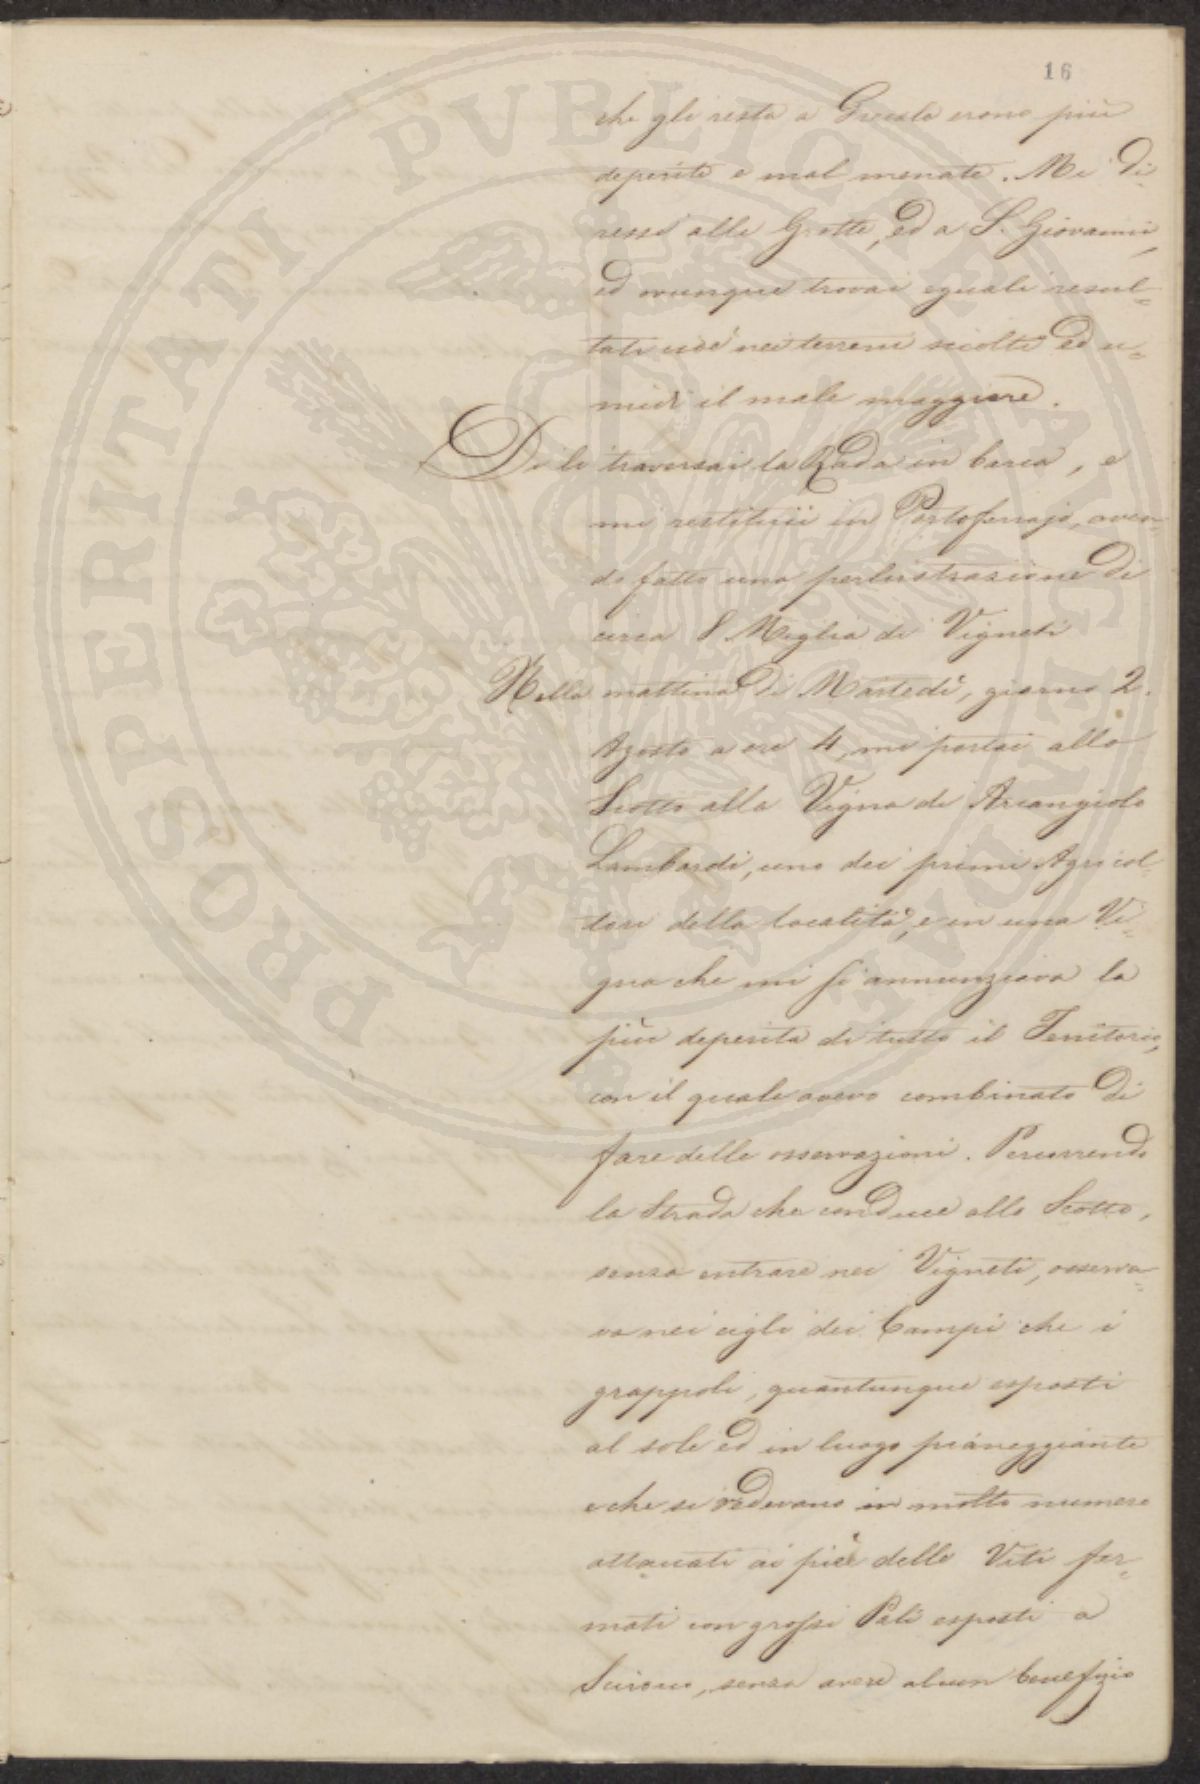 16
che gli resta a Grecale erano più
deperite e mal menate. Mi di-
ressi alle Grotte, ed a S. Giovanni,
ed ovunque trovai eguali resul-
tati cioè nei terreni sciolti ed u-
midi il male maggiore.
Di lì traversai la Rada in barca, e
mi restituii in Portoferrajo, aven-
do fatto una perlustrazione di
circa 8 Miglia di Vigneti
Nella mattina di Martedì, giorno 2.
Agosto a ore 4, mi portai allo
Scotto alla Vigna di Arcangiolo
Lambardi, uno dei primi Agricol-
tori della località, e in una Vi-
gna che mi si annunziava la
più deperita di tutto il Territorio,
con il quale avevo combinato di
fare delle osservazioni. Percorrendo
la Strada che conduce allo Scotto,
senza entrare nei Vigneti, osserva-
va nei cigli dei Campi che i
grappoli, quantunque esposti
al sole ed in luogo pianeggiante
e che si vedevano in molto numero
attaccati ai piè delle Viti fer-
mati con grossi Pali esposti a
Scirocco, senza avere alcun benefizio
PROSPERITATI PVBLICAE AVGENDAE